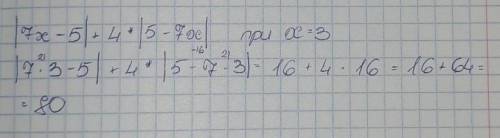 |7x-5|+4·|5-7x| при x=3
21) -16 21)
|7·3-5|+4·|5-7·3|=16+4·16=16+64=
=80